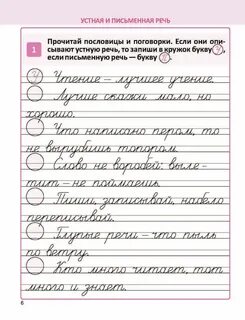 УСТНАЯ И ПИСЬМЕННАЯ РЕЧЬ
1 Прочитай пословицы и поговорки. Если они опи-
сывают устную речь, то запиши в кружок букву У,
если письменную речь — букву П.
Ч Чтение – лучшее учение.
Лучше скажи мало, но
хорошо.
Что написано пером, то
не вырубишь топором.
Слово не воробей: выле-
тит – не поймаешь.
Пиши, записывай, набело
переписывай.
Глупые речи – что пыль
по ветру.
Кто много читает, тот
много и знает.
6